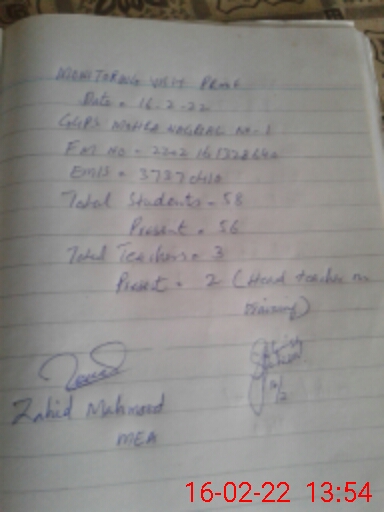 MONITORING VISIT PROOF
Date = 16-2-22
GGPS MOHRA NAGRIAL NO-1
EMIS = 37370410
Total Students = 58
Present = 56
Total Teachers = 3
Present = 2 (Head teacher on
training)
Zahid Mahmood
MEA
16/2
16-02-22 13:54